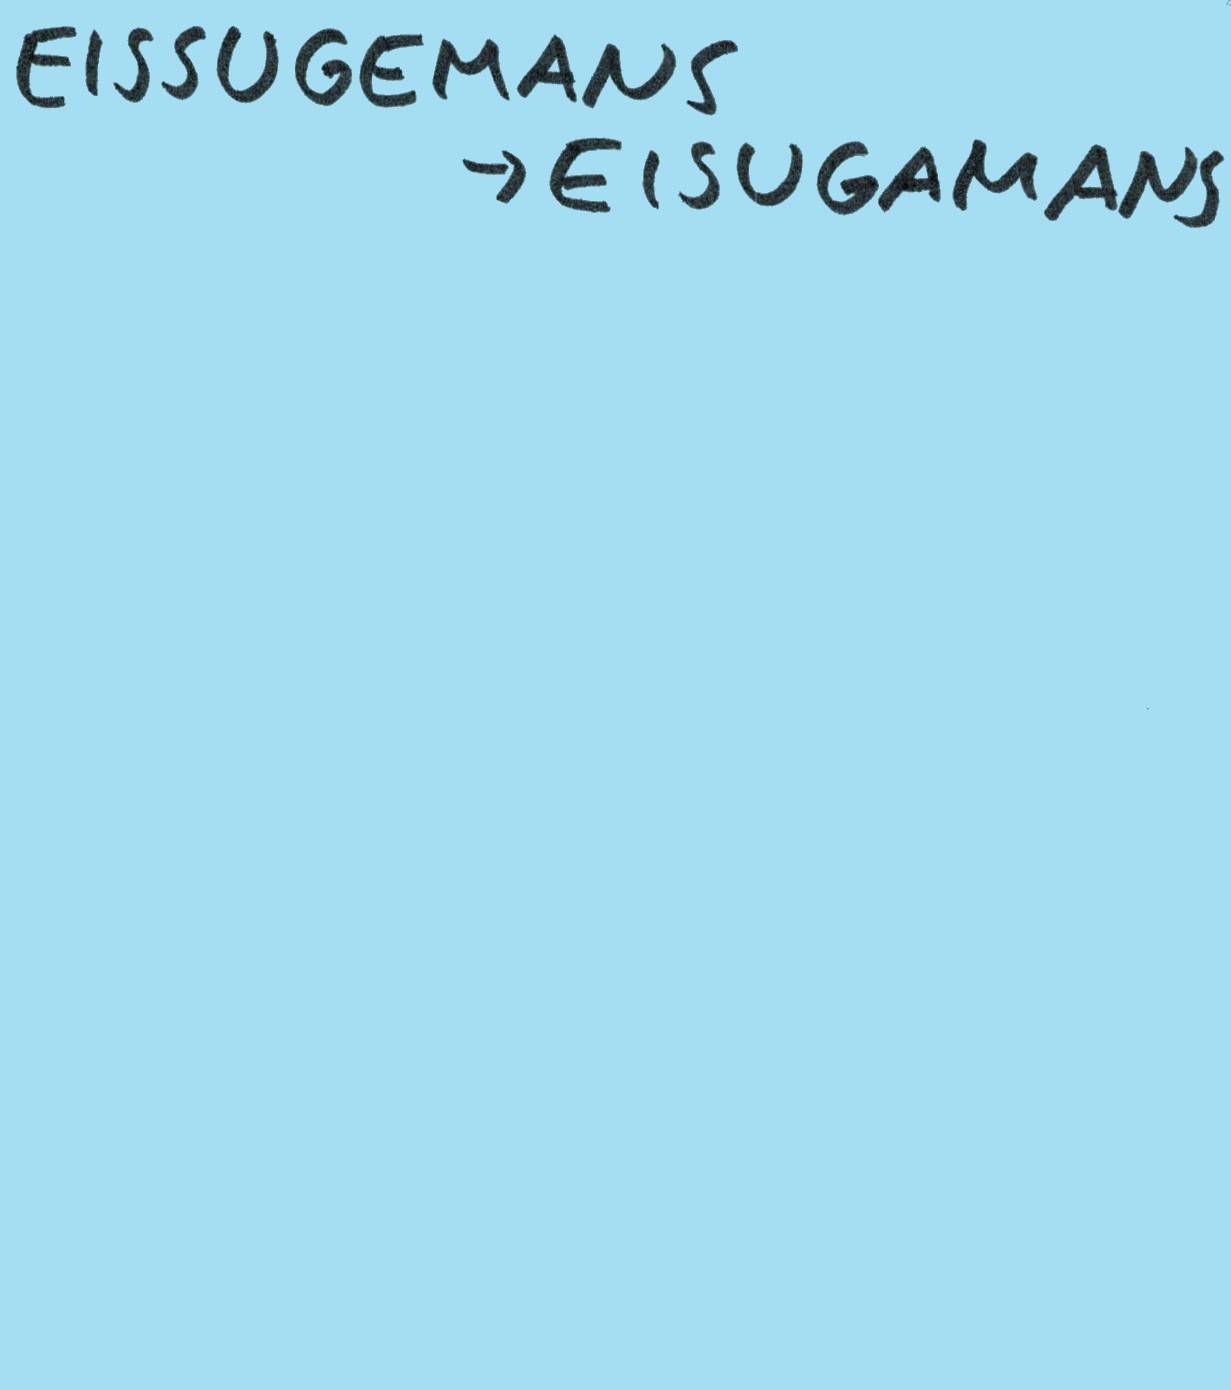 EISSUGEMANS
→ EISUGAMANS